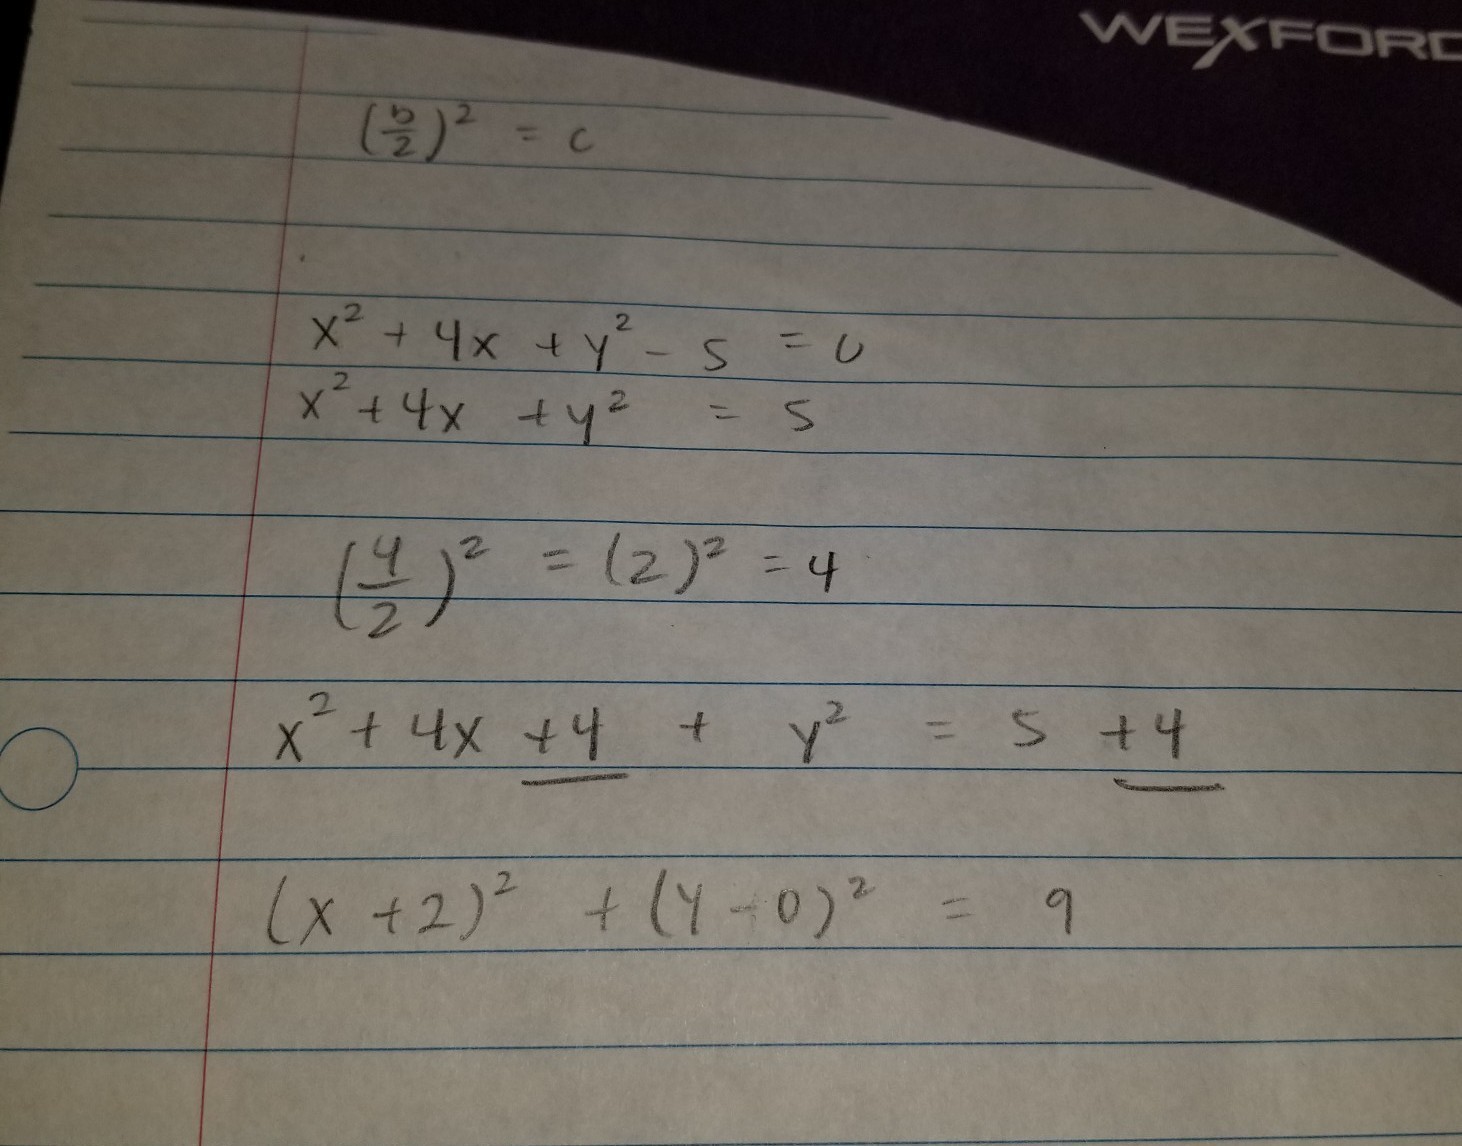 WEXFORD
(b/2)² = c
x² + 4x + y² - 5 = 0
x² + 4x + y² = 5
(4/2)² = (2)² = 4
x² + 4x +4 + y² = 5 +4
(x +2)² + (y - 0)² = 9